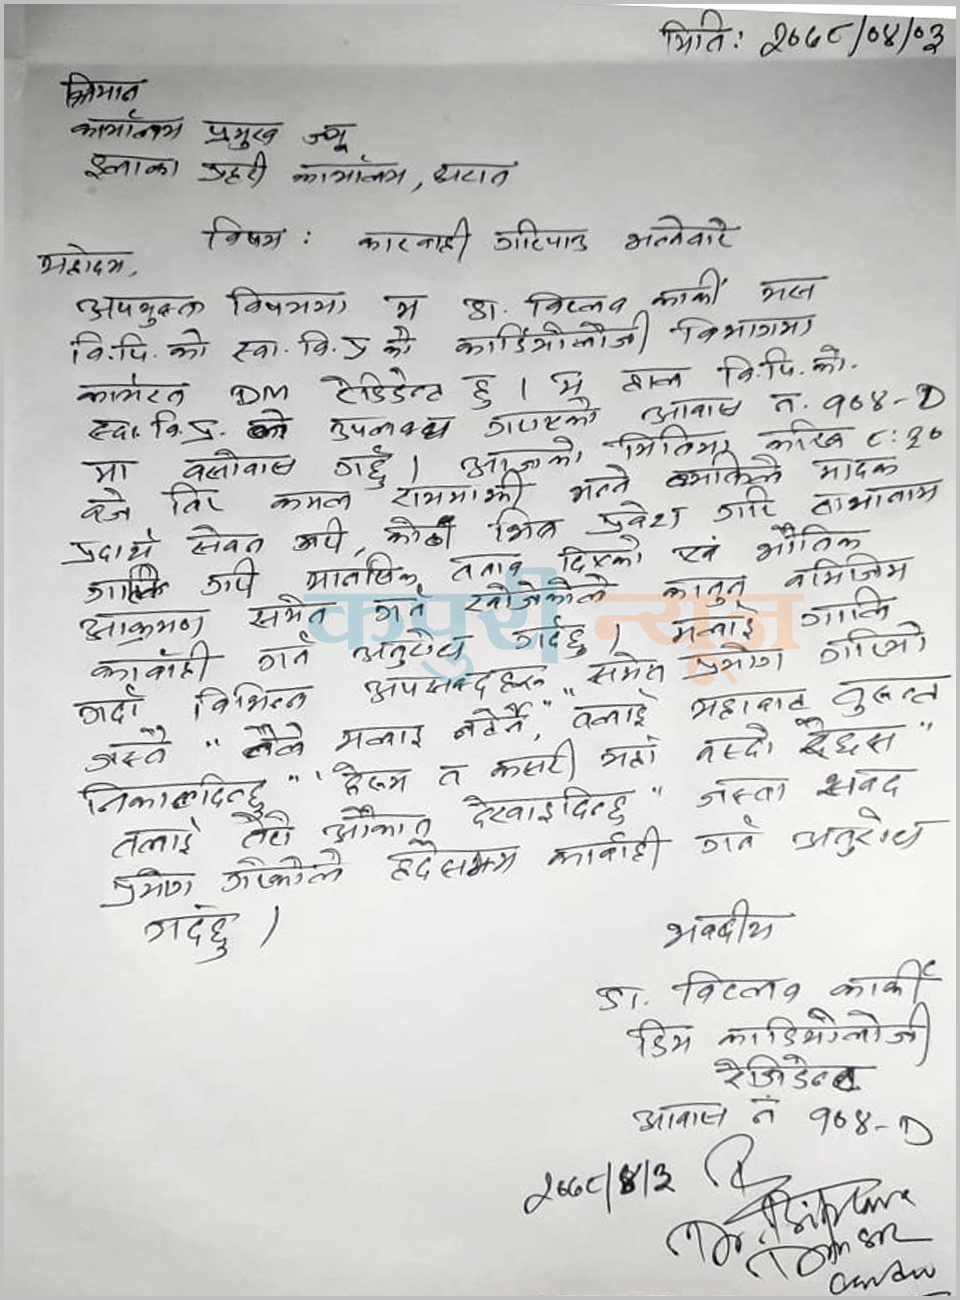 मिति: २०७८/०४/०३
श्रिमान
कार्यालय प्रमुख ज्यू
इलाका प्रहरी कार्यालय, धरान
विषय: कारवाही गरिपाउ भन्नेबारे
महोदय,
उपयुक्त विषयमा म डा. विप्लव कार्की यस
बि.पि.को स्वा.वि.प्र को कार्डियोलोजी विभागमा
कार्यरत DM रेजिडेन्ट हु । म हाल बि.पि.को.
स्वा.वि.प्र. को उपलब्ध गराएको आवास नं. १०४-D
मा वसोवास गर्छु । आजको मितिमा करिब ८:३०
बजे तिर कमल राममाझी भन्ने व्यक्तिले मादक
प्रदार्थ सेवन गरी, कोठा भित्र प्रवेश गरि नाभानाम
गालि गरी मानसिक तनाव दिएको एवं भौतिक
आक्रमण समेत गर्न खोजेकोले कानुन वमिजिम
कार्वाही गर्न अनुरोध गर्दछु । मलाई गालि
गर्दा विभिन्न अपशब्दहरू समेत प्रयोग गरियो
जस्तै "तैले मलाइ नटेर्ने", तलाई यहाबाट तुरुन्त
निकालदिन्छु" "हेरुम त कसरी यहाँ वस्दो रैछस"
तलाई तेरो औकात देखाइदिन्छु" जस्ता शब्द
प्रयोग गरेकोले हदैसम्म कार्वाही गर्न अनुरोध
गर्दछु ।
भवदीय
डा. विप्लव कार्की
डिम कार्डियोलोजी
रेजिडेन्ट
आवास नं १०४-D
२०७८/४/३
कपुरी न्यूज